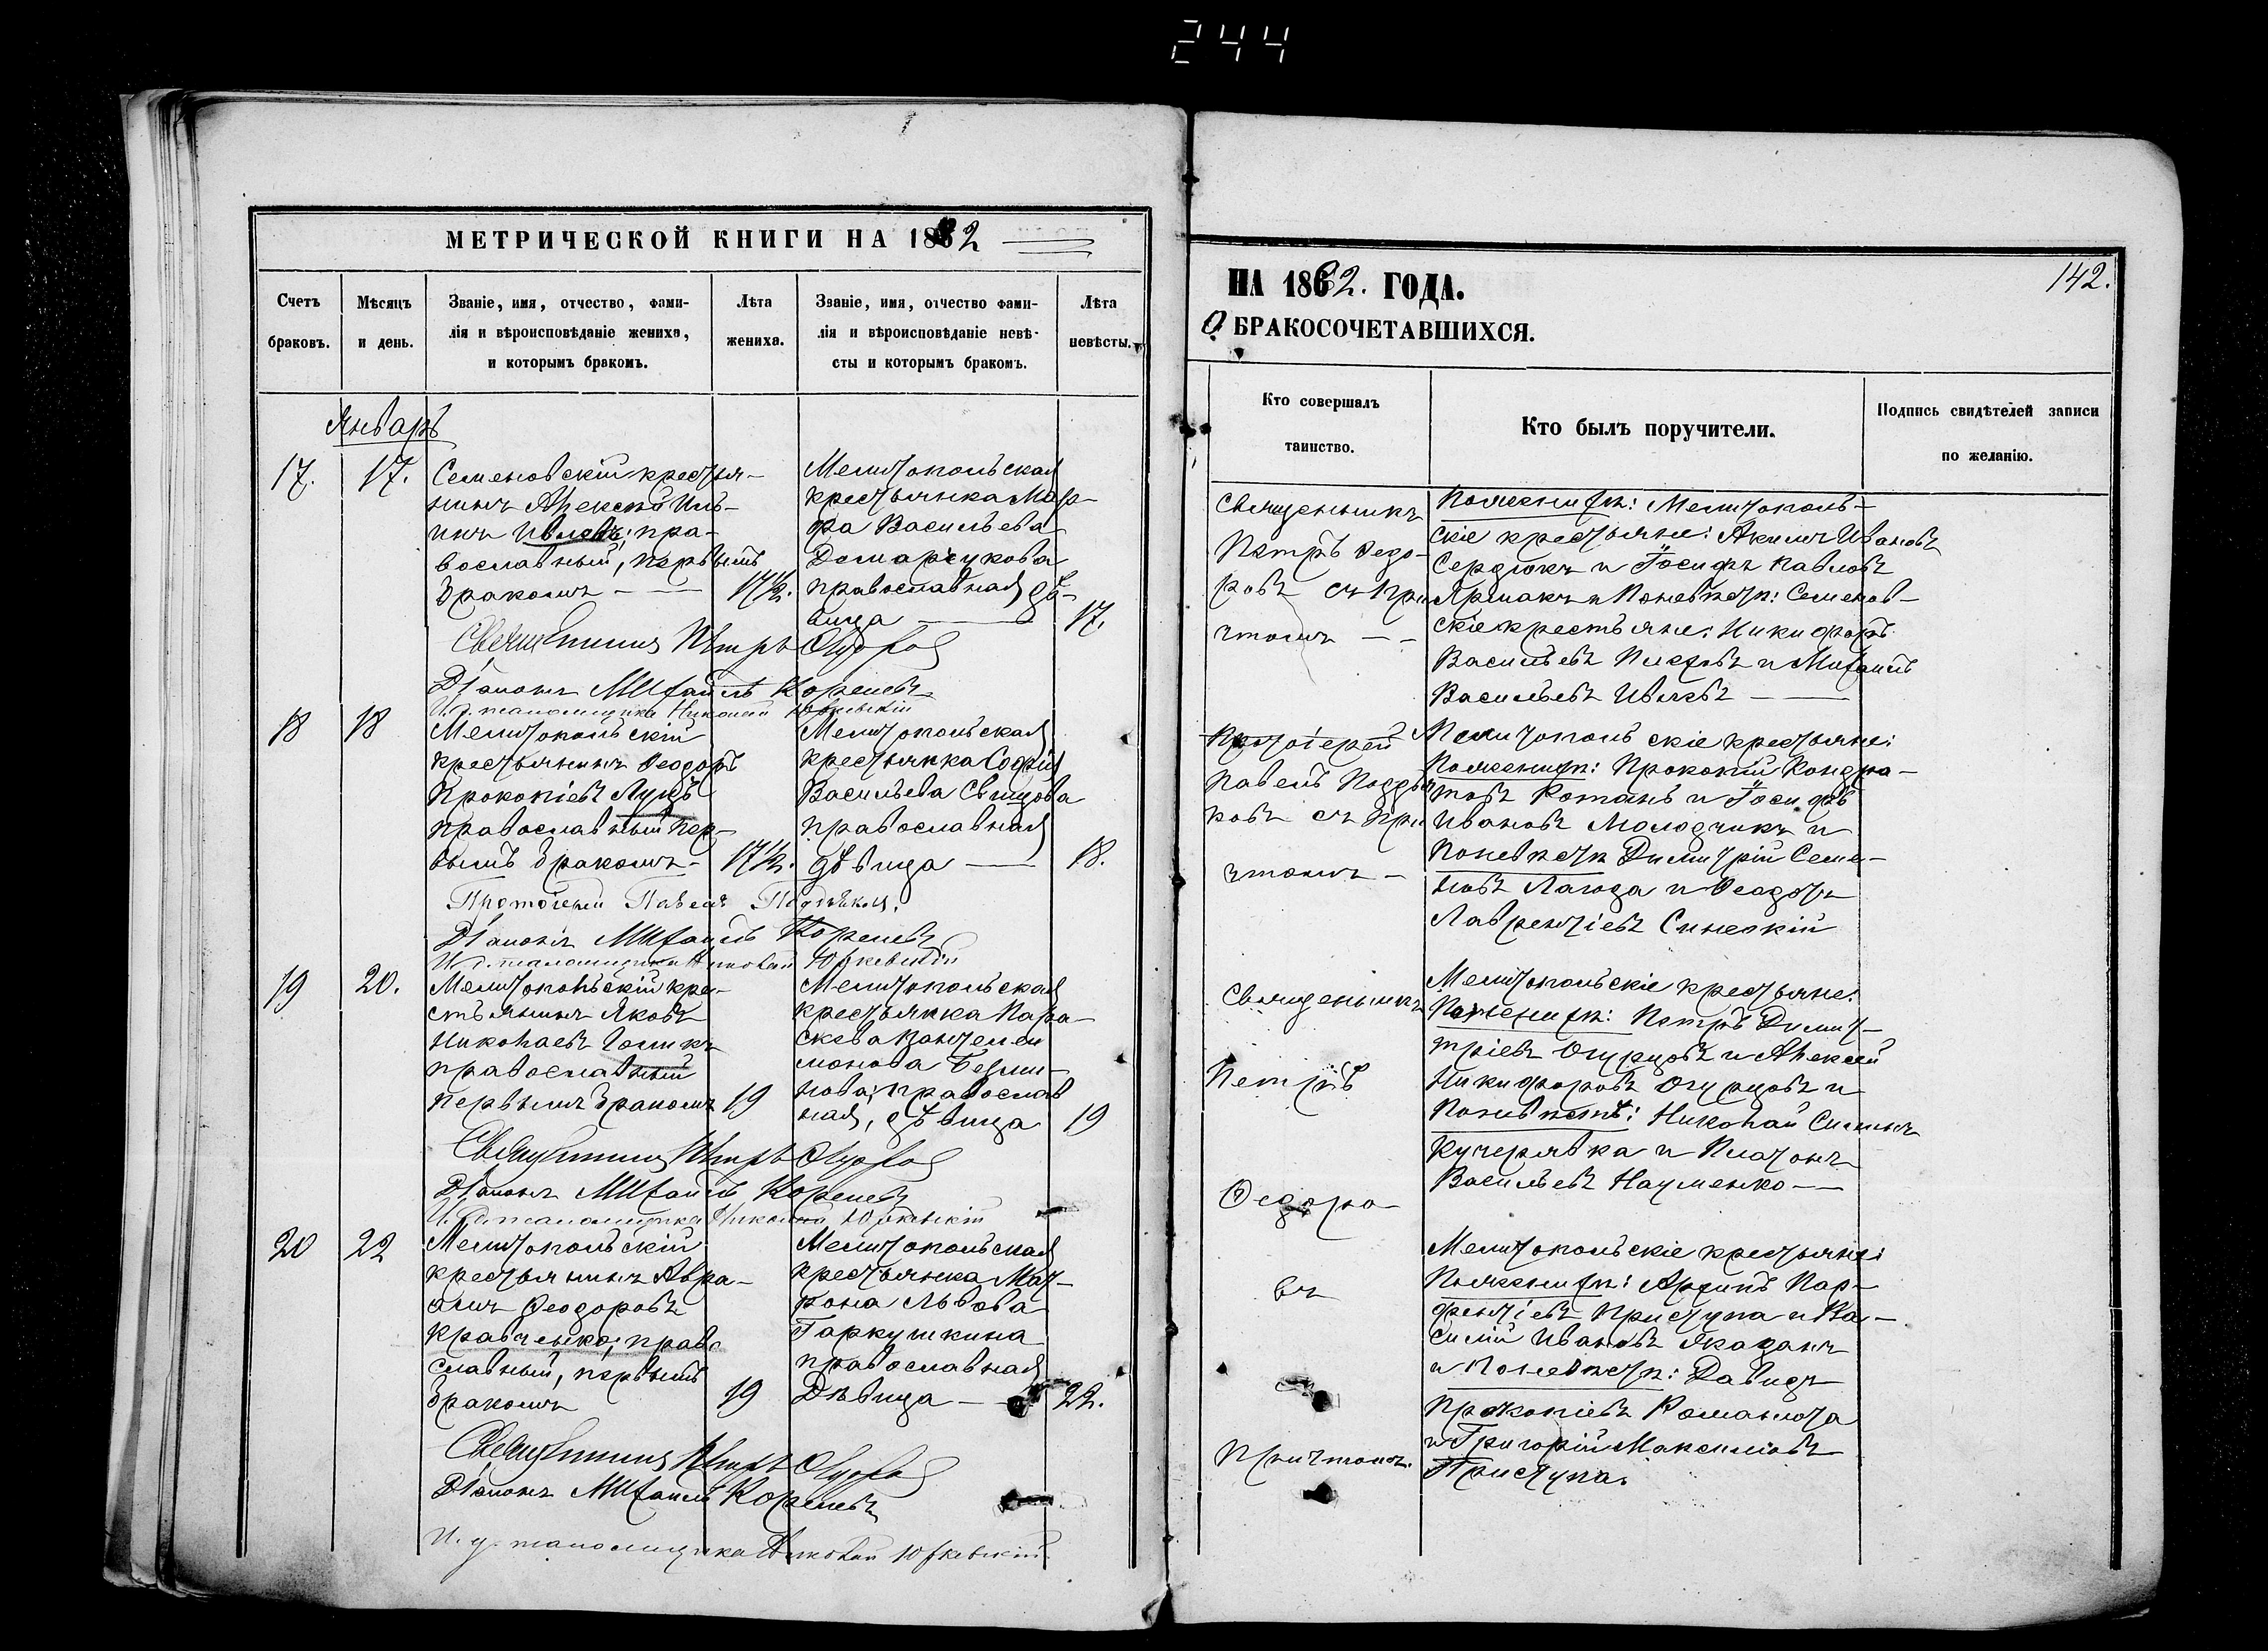 244
МЕТРИЧЕСКОЙ КНИГИ НА 1882
Счетъ
браковъ.
Мѣсяцъ
и день.
Званіе, имя, отчество, фами-
лія и вѣроисповѣданіе жениха,
и которымъ бракомъ.
Лѣта
жениха.
Званіе, имя, отчество фами-
лія и вѣроисповѣданіе невѣ-
сты и которымъ бракомъ.
Лѣта
невѣсты.
Январь
17.
17.
Семеновскій крестья-
нинъ Алексѣй Иль-
инъ Ивлевъ, пра-
вославный, первымъ
бракомъ
17½.
Мелитопольская
крестьянка Мар-
фа Васильева
православная дѣ-
вица
17.
Священникъ Петръ Ѳедоров
Діаконъ Михаилъ Кореневъ
И. д. псаломщика Николай Юркевскій
18
18
Мелитопольскій
крестьянинъ Ѳеодоръ
Прокопіевъ Луцъ
православный пер-
вымъ бракомъ
17½.
Мелитопольская
крестьянка Софія
Васильева Свищова
православная
дѣвица
18.
Протоіерей Павелъ Поддубковъ.
Діаконъ Михаилъ Кореневъ
И. д. псаломщика Николай Юркевскій
19
20.
Мелитопольскій кре-
стьянинъ Яковъ
Николаевъ Голикъ
православный
первымъ бракомъ
19
Мелитопольская
крестьянка Пара-
скева Пантелеи
монова
православ
ная, дѣвица
19
Священникъ Петръ Ѳедоров
Діаконъ Михаилъ Кореневъ
И. д. псаломщика Николай Юркевскій
20
22
Мелитопольскій
крестьянинъ Авра-
амъ Ѳеодоровъ
Кравченко, право
славный, первымъ
бракомъ
19
Мелитопольская
крестьянка Мат-
рона Львова
Гаркушкина
православная
Дѣвица
22.
Священникъ Петръ Ѳедоров
Діаконъ Михаилъ Кореневъ
И. д. псаломщика Николай Юркевскій
НА 1882. ГОДА.
142.
О БРАКОСОЧЕТАВШИХСЯ.
Кто совершалъ
таинство.
Кто былъ поручители.
Подпись свидѣтелей записи
по желанію.
Священникъ
Петръ Ѳедо-
ровъ съ при
чтомъ
По женихѣ: Мелитополь-
скіе крестьяне: Акимъ Ивановъ
Сердюкъ и Іосифъ Павловъ
Ярмакъ и По невѣстѣ: Семенов-
скіе крестьяне: Никифоръ
Васильевъ и Михаилъ
Васильевъ Ивлевъ
Протоіерей
Павелъ
ковъ съ при
чтомъ
Мелитопольскіе крестьяне:
По женихѣ: Прокопій Кондра-
товъ Романъ и Іосифъ
Ивановъ Молодчикъ и
По невѣстѣ Димитрій Семе-
новъ Лагода и Ѳеодоръ
Лаврентіевъ Синескій
Священникъ
Петръ
Ѳедоро
въ
съ
Причтомъ.
Мелитопольскіе крестьяне:
По женихѣ: Петръ Димит-
тріевъ Огурцовъ и Алексѣй
Никифоровъ Огурцовъ и
По невѣстѣ: Николай Симинъ
Кучерявка и Платонъ
Васильевъ Науменко
Мелитопольскіе крестьяне:
По женихѣ: Архипъ Пар-
фентіевъ Приступа и Ва-
силій Ивановъ
и По невѣстѣ: Давидъ
Прокопіевъ Романюта
и Григорій Максимовъ
Приступа.